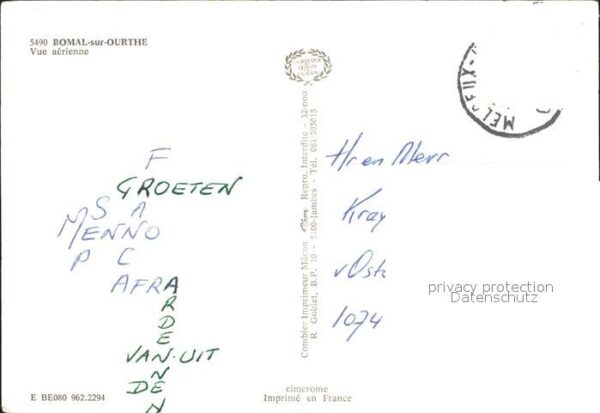 5490 BOMAL-sur-OURTHE
Vue aérienne
F
GROETEN
S A
MENNO
P C
AFRA
ARDENNEN
VAN·UIT
DE
Combier Imprimeur Mâcon Cim Repro. Interdite - 32-000
R. Goblet, B.P. 10 - 5100-Jambes - Tél. 081.303015
Hr en Mevr
Kray
vOst
1074
privacy protection
Datenschutz
E BE080 962.2294
cimcrome
Imprimé en France